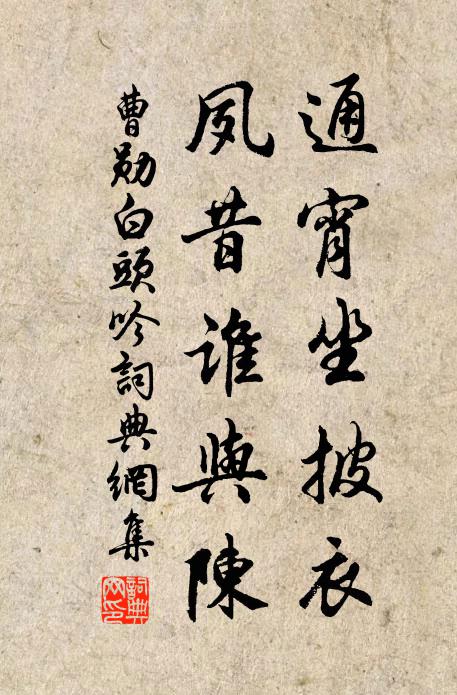 通宵坐披衣
夙昔誰與陳
曹勛白頭吟詞典網集
詞典
网印